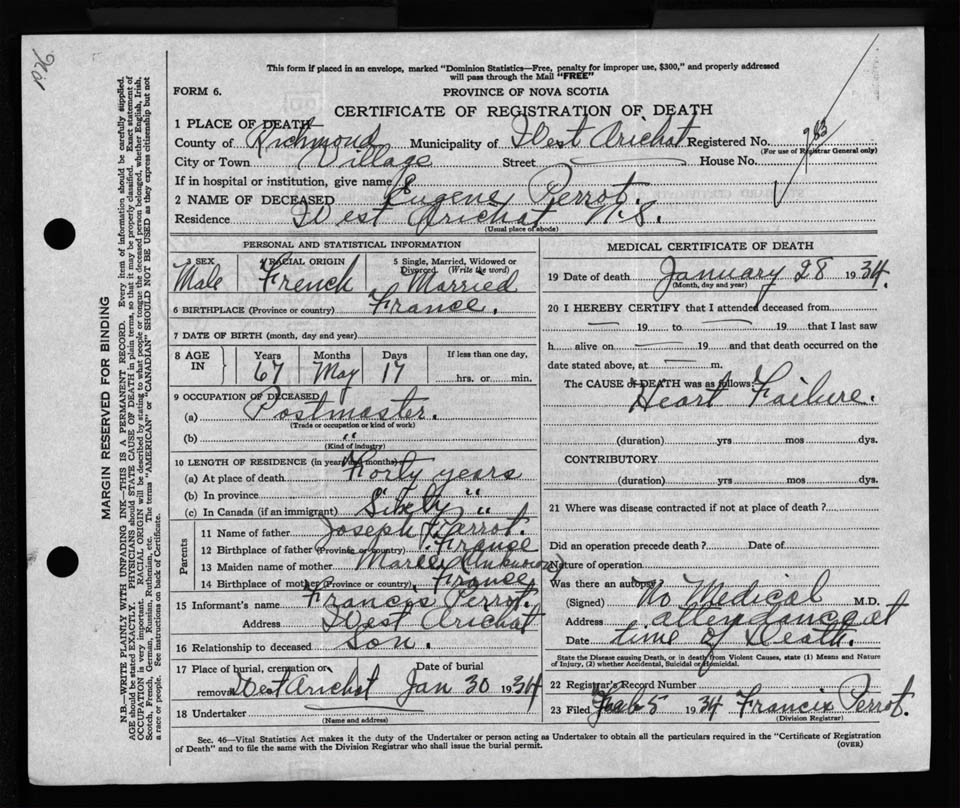 This form if placed in an envelope, marked "Dominion Statistics—Free, penalty for improper use, $300," and properly addressed
will pass through the Mail "FREE"
FORM 6.
PROVINCE OF NOVA SCOTIA
CERTIFICATE OF REGISTRATION OF DEATH
1 PLACE OF DEATH
County of Richmond Municipality of West Arichat Registered No.
(For use of Registrar General only)
City or Town Village Street House No.
If in hospital or institution, give name
2 NAME OF DECEASED Eugene Perrot.
Residence West Arichat N.S.
(Usual place of abode)
PERSONAL AND STATISTICAL INFORMATION
3 SEX 4 RACIAL ORIGIN 5 Single, Married, Widowed or
Divorced (Write the word)
Male French Married
6 BIRTHPLACE (Province or country) France.
7 DATE OF BIRTH (month, day and year)
8 AGE IN Years Months Days If less than one day,
67 May 17 hrs. or min.
9 OCCUPATION OF DECEASED
(a) Postmaster.
(Trade or occupation or kind of work)
(b) "
(Kind of industry)
10 LENGTH OF RESIDENCE (in years and months)
(a) At place of death Forty years
(b) In province
(c) In Canada (if an immigrant) "
Parents
11 Name of father Joseph Perrot.
12 Birthplace of father (Province or country) France
13 Maiden name of mother
14 Birthplace of mother (Province or country) France
15 Informant's name Francis Perrot.
Address West Arichat
16 Relationship to deceased Son.
17 Place of burial, cremation or Date of burial
removal West Arichat Jan 30 1934
18 Undertaker
(Name and address)
MEDICAL CERTIFICATE OF DEATH
19 Date of death January 28 1934.
(Month, day and year)
20 I HEREBY CERTIFY that I attended deceased from
19 to 19 that I last saw
h alive on 19 and that death occurred on the
date stated above, at m.
The CAUSE of DEATH was as follows:
Heart Failure.
(duration) yrs mos dys.
CONTRIBUTORY
(duration) yrs mos dys.
21 Where was disease contracted if not at place of death?
Did an operation precede death? Date of
Nature of operation
Was there an autopsy
(Signed) No Medical M.D.
Address attendance at
Date time of Death.
State the Disease causing Death, or in death from Violent Causes, state (1) Means and Nature
of Injury, (2) whether Accidental, Suicidal or Homicidal.
22 Registrar's Record Number
23 Filed Feb 5 1934 Francis Perrot.
(Division Registrar)
Sec. 46—Vital Statistics Act makes it the duty of the Undertaker or person acting as Undertaker to obtain all the particulars required in the "Certificate of Registration
of Death" and to file the same with the Division Registrar who shall issue the burial permit.
(OVER)
MARGIN RESERVED FOR BINDING
N.B.—WRITE PLAINLY WITH UNFADING INK—THIS IS A PERMANENT RECORD. Every item of information should be carefully supplied.
AGE should be stated EXACTLY. PHYSICIANS should STATE CAUSE OF DEATH in plain terms, so that it may be properly classified. Exact statement of
OCCUPATION is very important. RACIAL ORIGIN will be described by stating to what people or tongue the deceased person belonged, whether English, Irish,
Scotch, French, German, Russian, Ruthenian, etc. The terms "AMERICAN" or "CANADIAN" SHOULD NOT BE USED as they express citizenship but not
a race or people. See instructions on back of Certificate.